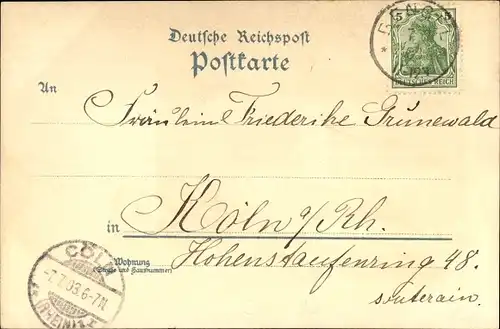 Deutsche Reichspost
Postkarte
An
Fräulein Friederike Grunewald
in Köln a/Rh.
Wohnung
(Straße und Hausnummer)
Hohenstaufenring 48.
souterain.
CÖLN
-7.7.03.6-7N.
(RHEIN) 1
5
5
DEUTSCHES REICH